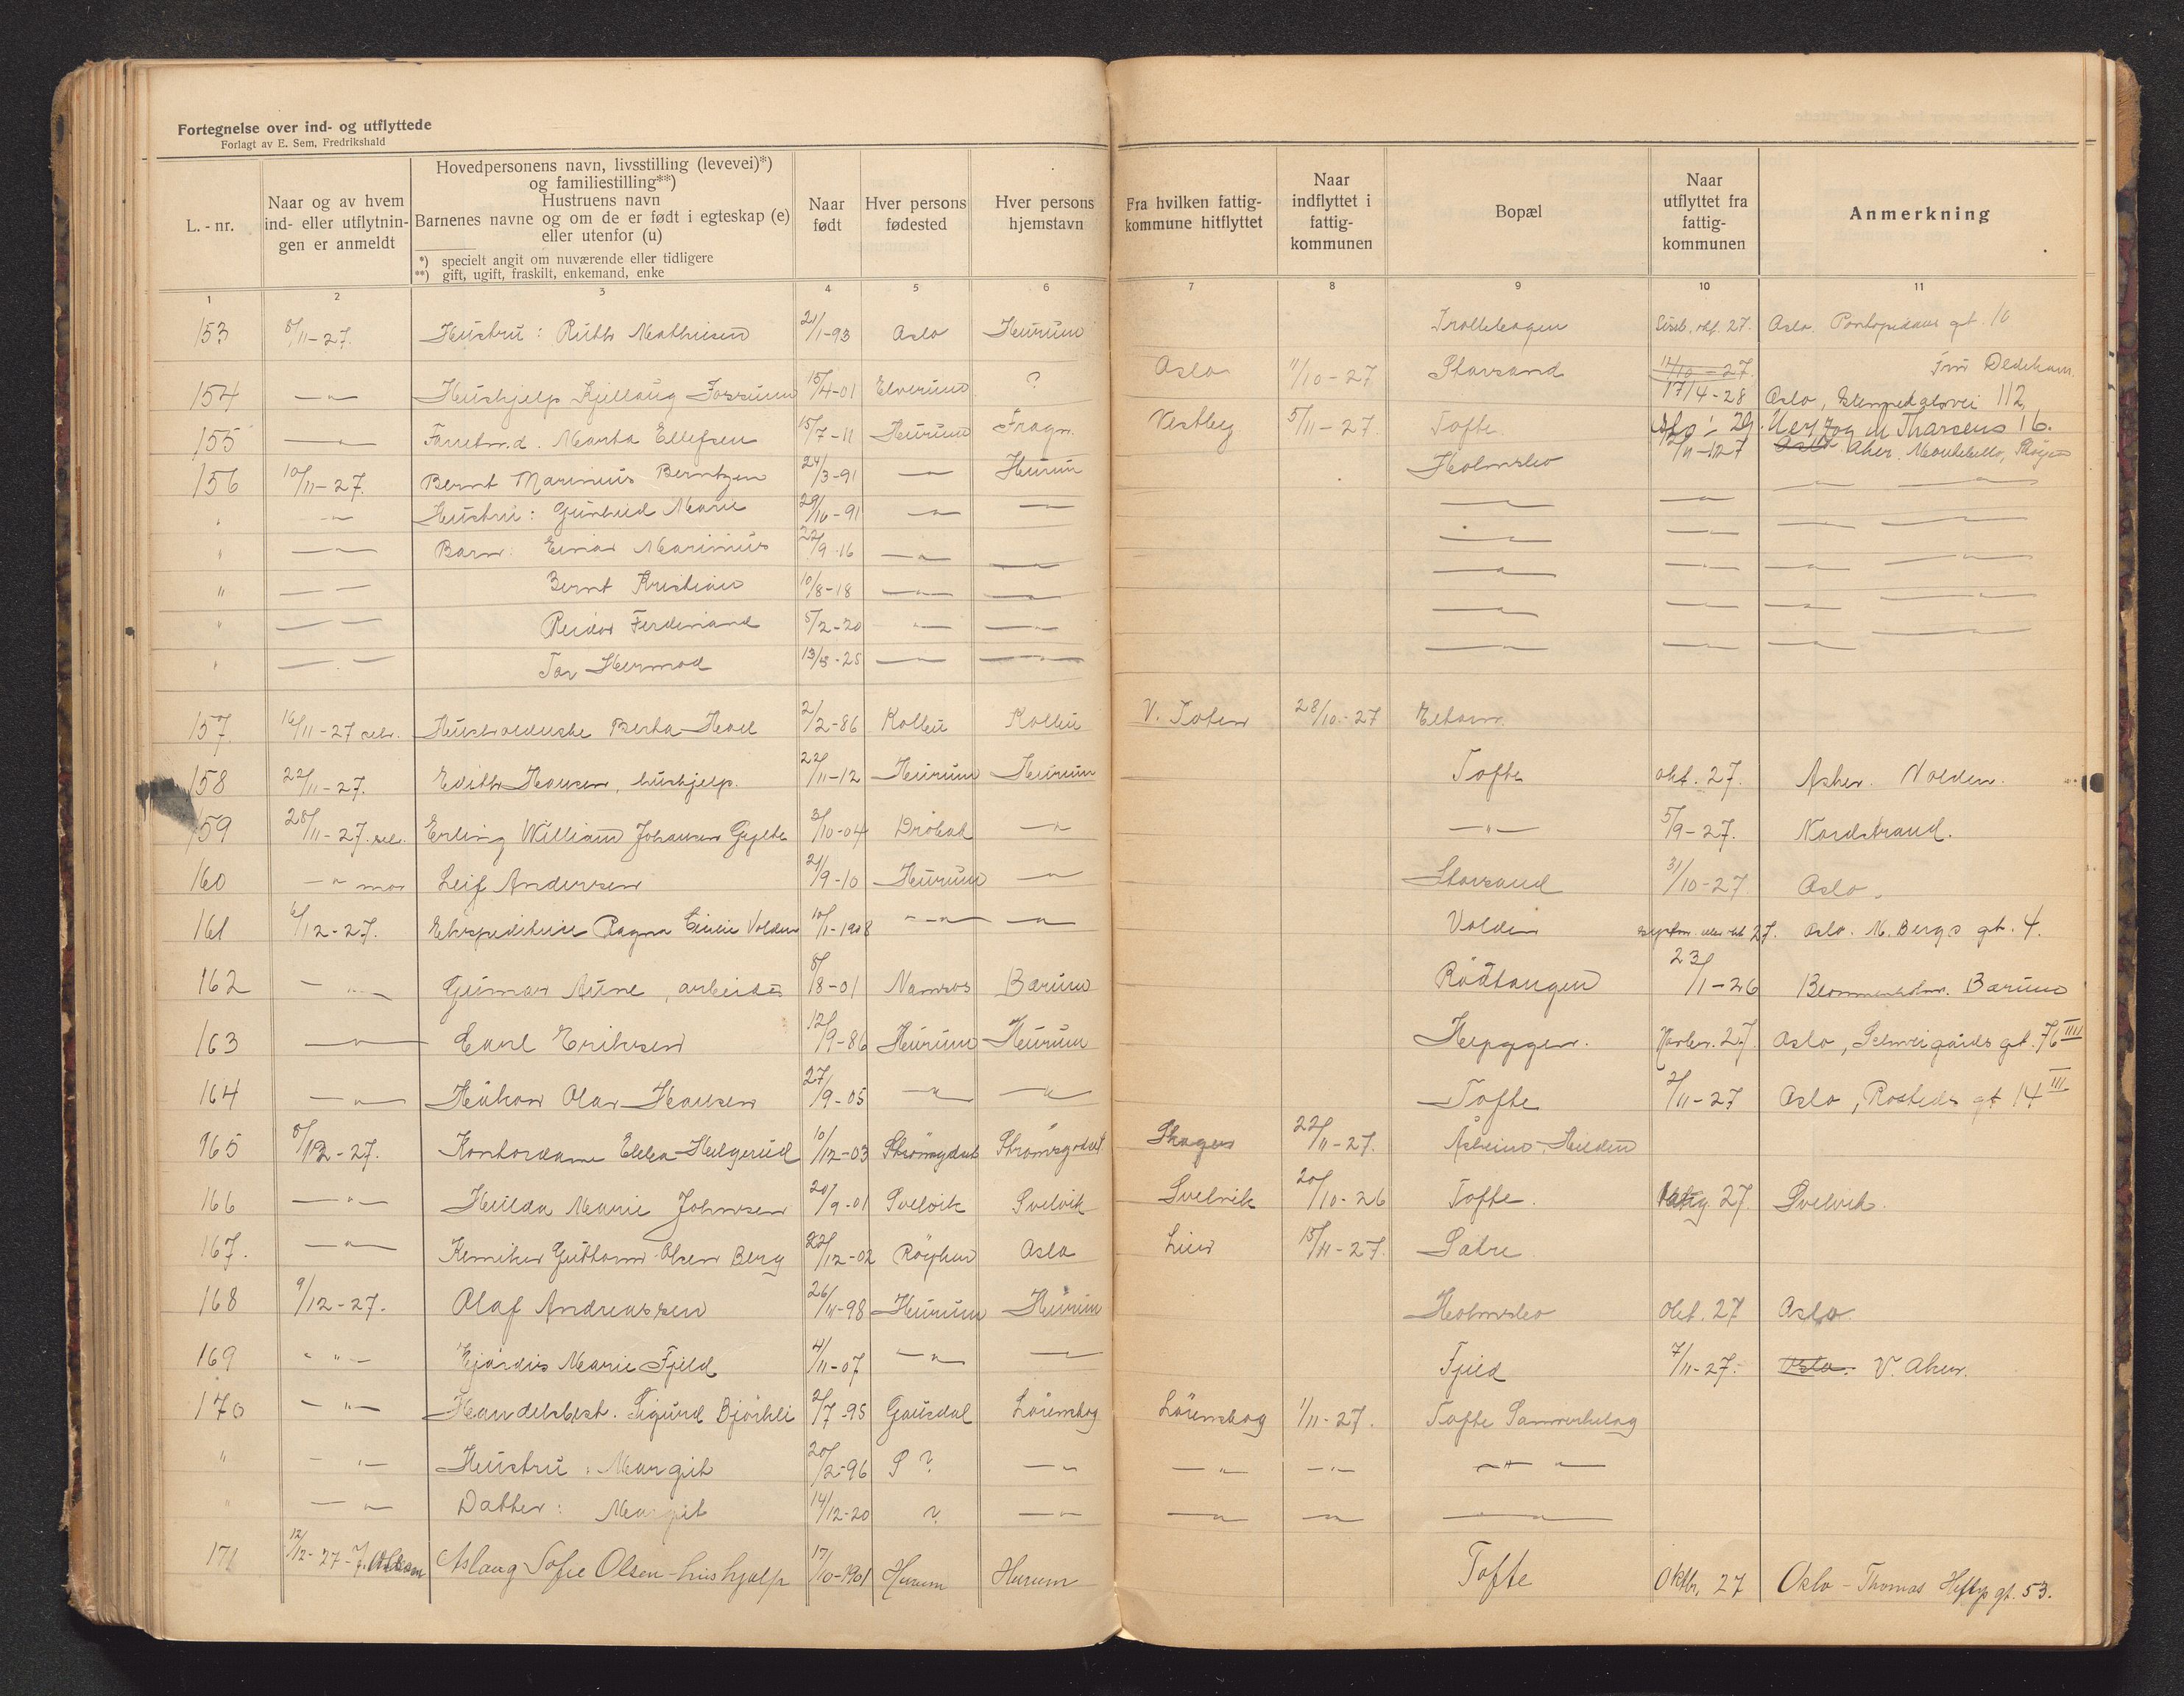 Fortegnelse over ind- og utflyttede
Forlagt av E. Sem, Fredrikshald
L. - nr.
Naar og av hvem ind- eller utflytnin- gen er anmeldt
Hovedpersonens navn, livsstilling (levevei)*)
og familiestilling**)
Hustruens navn
Barnenes navne og om de er født i egteskap (e)
eller utenfor (u)
*) specielt angit om nuværende eller tidligere
**) gift, ugift, fraskilt, enkemand, enke
Naar født
Hver persons fødested
Hver persons hjemstavn
Fra hvilken fattig- kommune hitflyttet
Naar indflyttet i fattig- kommunen
Bopæl
Naar utflyttet fra fattig- kommunen
Anmerkning
1 2 3 4 5 6 7 8 9 10 11
153 8/11-27. Hustru: Ruth Mathisen 21/1-93 Oslo Hurum Trollebogen okt. 27. Oslo. Pontopidans gt. 10
154 -"- Hushjelp Kjellaug Fossum 15/4-01 Elverum ? Oslo 11/10-27 Storsand 11/10-27. 17/4-28 Oslo, 112
155 -"- Marta Ellefsen 15/7-11 Hurum Frogn Vestby 5/11-27. Tofte 16.
156 10/11-27. Bernt Marinius Berntzen 24/3-91 -"- Hurum Holmsbo 12/11-27 Oslo Aker.
" -"- Hustru: Gunhild Marie 29/10-91 -"- -"- -"- -"- -"-
" -"- Barn: Einar Marinius 22/9-16 -"- -"- -"- -"- -"-
" -"- Bernt Kristian 10/8-18 -"- -"- -"- -"- -"-
" -"- Reidar Ferdinand 5/2-20 -"- -"- -"- -"- -"-
" -"- Tor Hermod 13/8-25 -"- -"- -"- -"- -"-
157. 16/11-27 selv. Husholderske Berta Hoel 2/2-86 Kolbu Kolbu V. Toten 28/10-27
158 22/11-27. Edith Hansen, hushjelp. 22/11-12 Hurum Hurum Tofte okt. 27. Asker. Volden.
159 28/11-27. selv. Erling William Johansen 3/10-04 Dröbak -"- -"- 5/9-27. Nordstrand.
160 -"- mor Leif Andersen 21/9-10 Hurum -"- Storsand 31/10-27 Oslo.
161 6/12-27. Ekspeditrise Ragna Volden 10/1-1908 -"- -"- Volden 27. Oslo. M. Bergs gt. 4.
162 -"- Gunnar Aune, arbeider 8/8-01 Namsos Bærum Rödtangen 23/1-26 Blommenholm. Bærum
163 -"- Carl Eriksen 12/9-86 Hurum Hurum 27 Oslo, gt. 76 IIII
164 -"- Håkon Olav Hansen 27/9-05 -"- -"- Tofte 2/11-27 Oslo, Rosteds gt 14 III
165 8/12-27. Kontordame Ebba Helgerud 10/12-03 Strömsgodset Skoger 22/11-27.
166 -"- Hulda Marie Johnsen 20/9-01 Svelvik Svelvik Svelvik 20/10-26 Tofte. 27 Svelvik.
167. -"- Kemiker Guthorm Olsen Berg 22/12-02 Röyken Oslo Lier 15/11-27. Sætre
168 9/12-27. Olaf Andreassen 26/11-98 Hurum Hurum Holmsbo Okt. 27 Oslo.
169 -"- Hjördis Marie Fjeld 4/11-07 -"- -"- Fjeld 7/11-27. Oslo. V. Aker.
170 -"- Handelsbest. Sigurd Björkli 2/7-95 Gausdal Lörenskog Lörenskog 1/11-27. Tofte Samvirkelag
" -"- Hustru: Margit 20/2-96 S? -"- -"- -"- -"-
" -"- Datter: Margit 14/12-20 ? -"- -"- -"- -"-
171 12/12-27 Aslaug Sofie Olsen - hushjelp 17/10-1901 Hurum Hurum Tofte Oktbr. 27 Oslo - Thomas Heftys gt. 53.